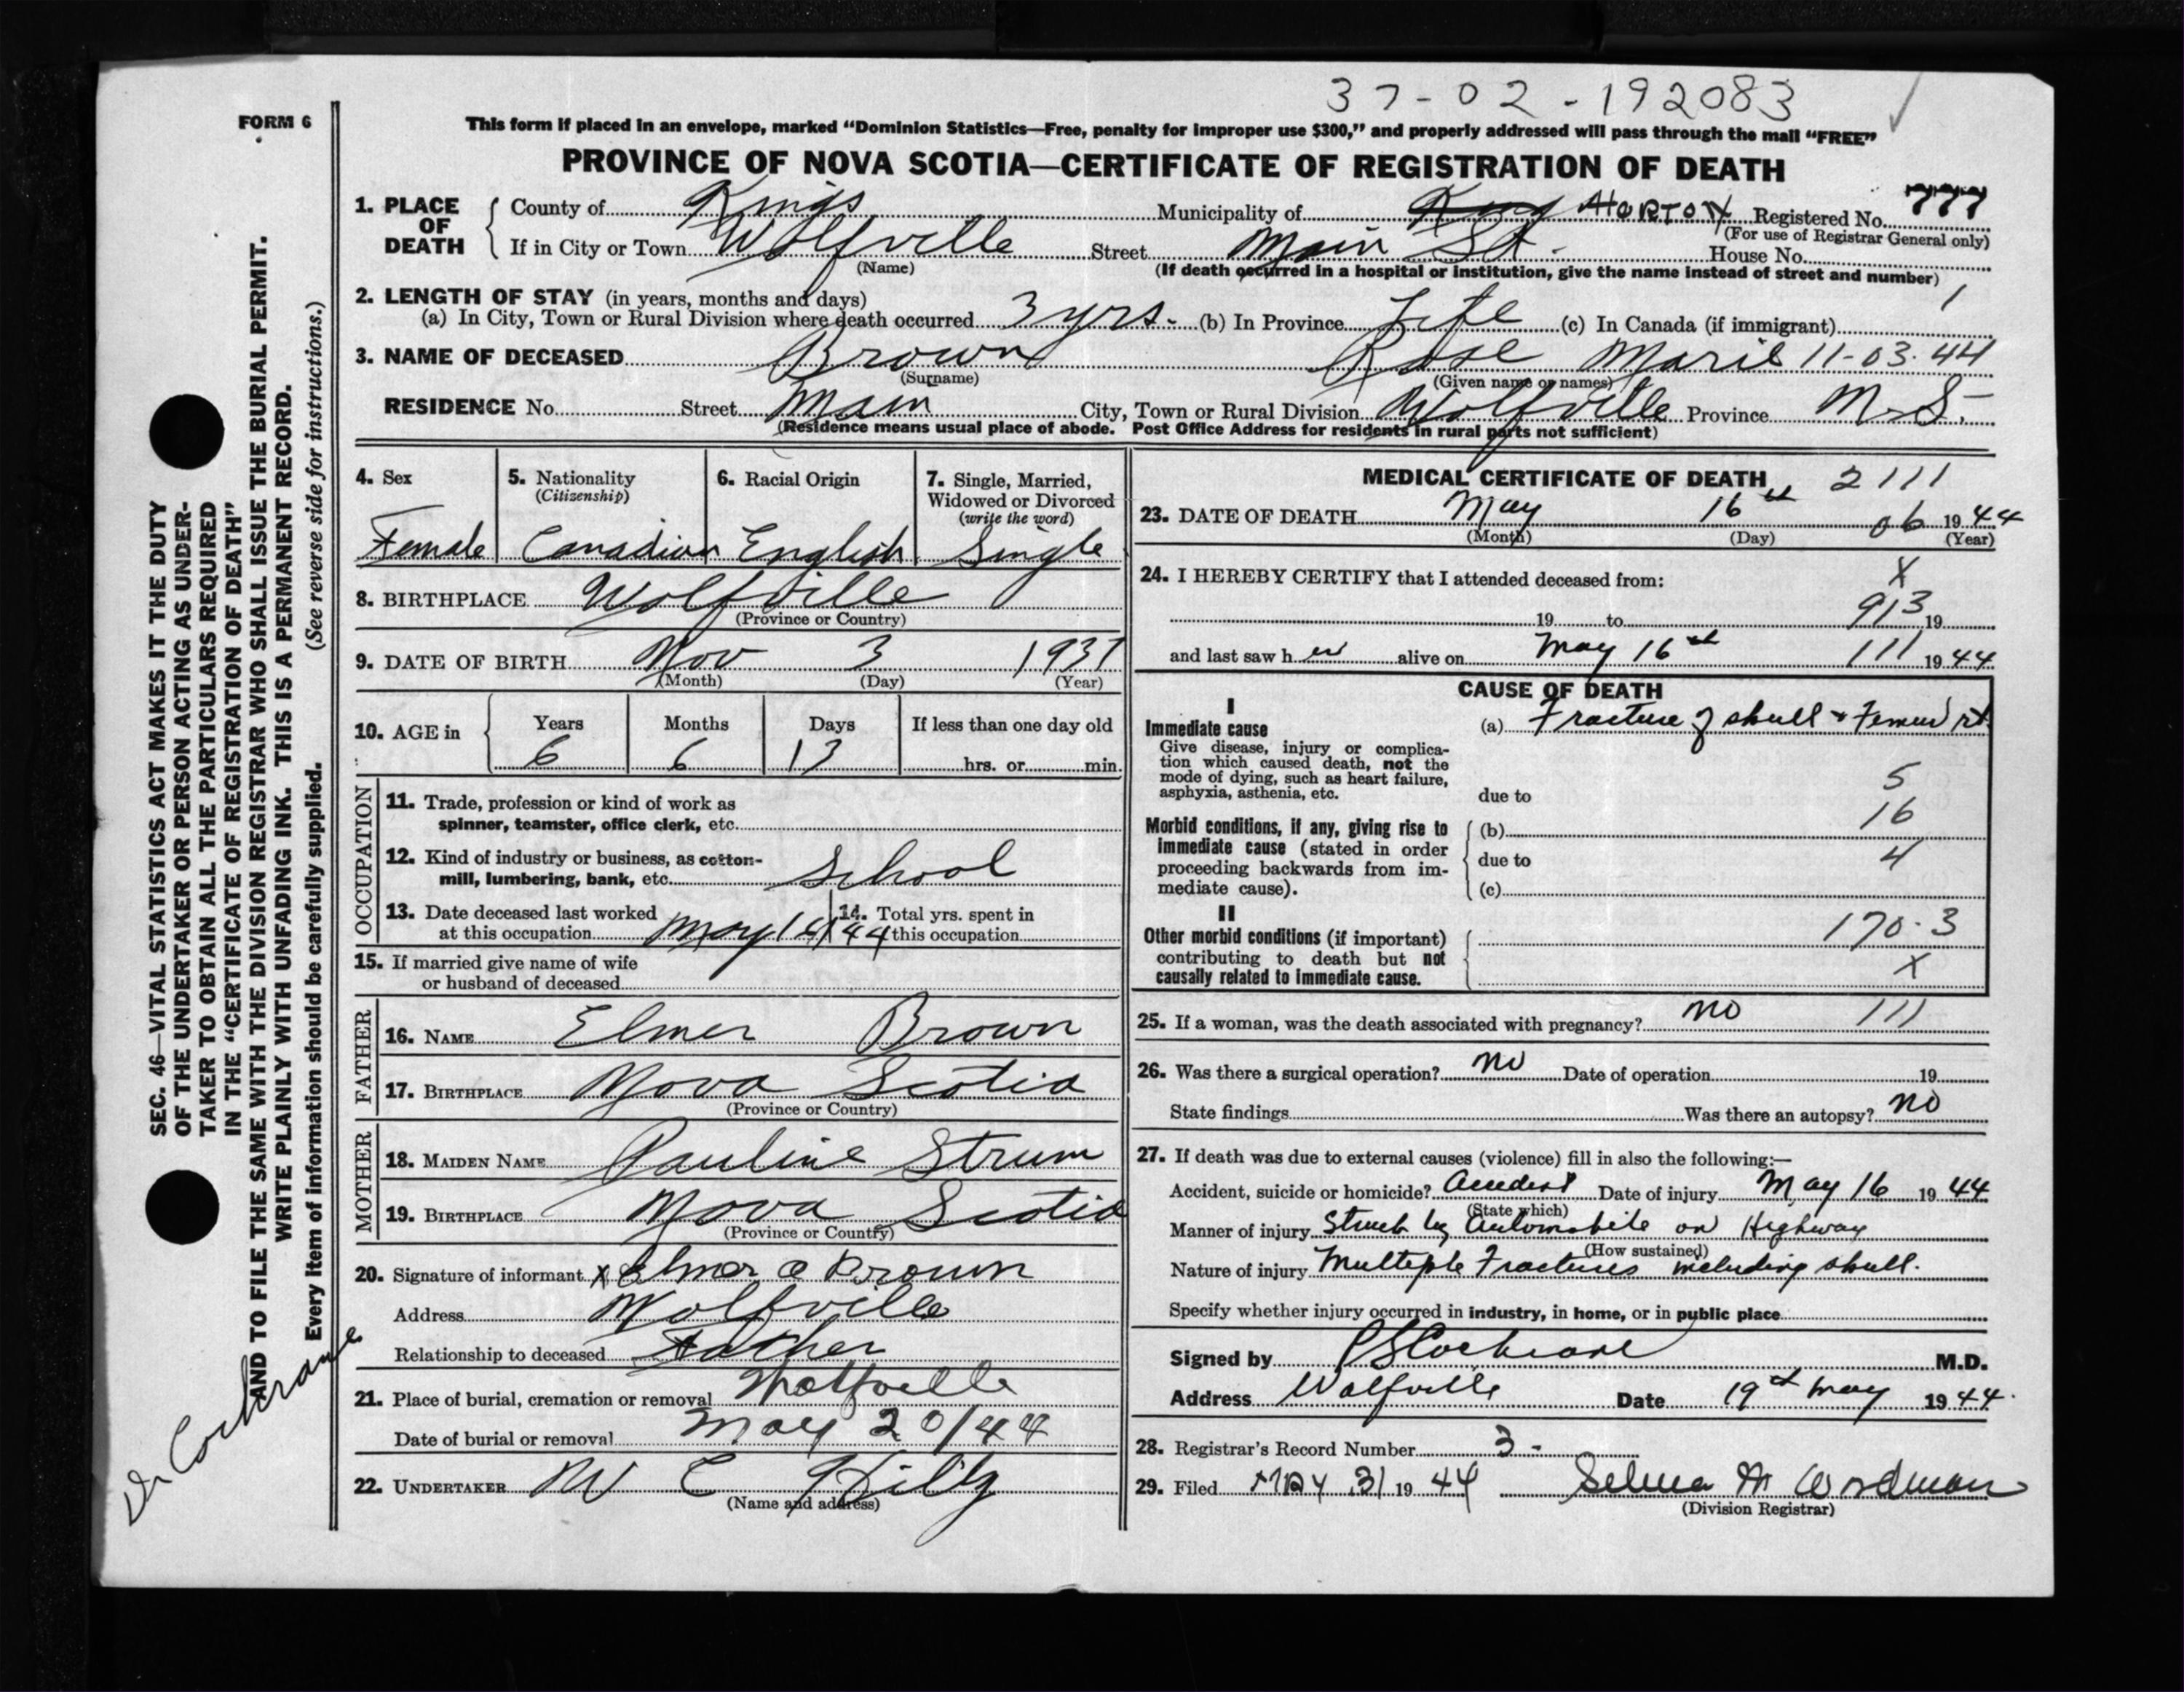 37-02-192083
FORM 6
This form if placed in an envelope, marked “Dominion Statistics—Free, penalty for improper use $300,” and properly addressed will pass through the mail “FREE”
PROVINCE OF NOVA SCOTIA—CERTIFICATE OF REGISTRATION OF DEATH
1. PLACE OF DEATH
County of Kings Municipality of King HORTON Registered No. 777
(For use of Registrar General only)
If in City or Town Wolfville Street Main St. House No.
(Name) (If death occurred in a hospital or institution, give the name instead of street and number)
2. LENGTH OF STAY (in years, months and days) 1
(a) In City, Town or Rural Division where death occurred 3 yrs. (b) In Province Life (c) In Canada (if immigrant)
3. NAME OF DECEASED Brown Rose Marie 11-03-44
(Surname) (Given name or names)
RESIDENCE No. Street Main City, Town or Rural Division Wolfville Province N.S.
(Residence means usual place of abode. Post Office Address for residents in rural parts not sufficient)
4. Sex
Female
5. Nationality
(Citizenship)
Canadian
6. Racial Origin
English
7. Single, Married,
Widowed or Divorced
(write the word)
Single
8. BIRTHPLACE Wolfville
(Province or Country)
9. DATE OF BIRTH Nov 3 1937
(Month) (Day) (Year)
10. AGE in
Years Months Days If less than one day old
6 6 13 hrs. or min.
OCCUPATION
11. Trade, profession or kind of work as
spinner, teamster, office clerk, etc.
12. Kind of industry or business, as cotton-
mill, lumbering, bank, etc. School
13. Date deceased last worked
at this occupation May 16/44
14. Total yrs. spent in
this occupation
15. If married give name of wife
or husband of deceased
FATHER
16. NAME Elmer Brown
17. BIRTHPLACE Nova Scotia
(Province or Country)
MOTHER
18. MAIDEN NAME Pauline Strum
19. BIRTHPLACE Nova Scotia
(Province or Country)
20. Signature of informant X Elmer a Brown
Address Wolfville
Relationship to deceased Father
21. Place of burial, cremation or removal Wolfville
Date of burial or removal May 20/44
22. UNDERTAKER W C
(Name and address)
MEDICAL CERTIFICATE OF DEATH 2111
23. DATE OF DEATH May 16th 06 1944
(Month) (Day) (Year)
24. I HEREBY CERTIFY that I attended deceased from: X
19 to 913 19
and last saw h er alive on May 16th 111 1944
CAUSE OF DEATH
I
Immediate cause
Give disease, injury or complica-
tion which caused death, not the
mode of dying, such as heart failure,
asphyxia, asthenia, etc.
(a) Fracture of skull & Femur rt
5
due to
16
Morbid conditions, if any, giving rise to
immediate cause (stated in order
proceeding backwards from im-
mediate cause).
(b)
due to 4
(c)
II
Other morbid conditions (if important)
contributing to death but not
causally related to immediate cause.
170.3
X
25. If a woman, was the death associated with pregnancy? no 111
26. Was there a surgical operation? no Date of operation 19
State findings Was there an autopsy? no
27. If death was due to external causes (violence) fill in also the following:—
Accident, suicide or homicide? Accident Date of injury May 16 1944
(State which)
Manner of injury Struck by Automobile on Highway
(How sustained)
Nature of injury Multiple Fractures including skull.
Specify whether injury occurred in industry, in home, or in public place
Signed by P S Cochrane M.D.
Address Wolfville Date 19th May 1944.
28. Registrar's Record Number 3-
29. Filed MAY 31 1944 Selma M Wordman
(Division Registrar)
SEC. 46—VITAL STATISTICS ACT MAKES IT THE DUTY
OF THE UNDERTAKER OR PERSON ACTING AS UNDER-
TAKER TO OBTAIN ALL THE PARTICULARS REQUIRED
IN THE “CERTIFICATE OF REGISTRATION OF DEATH”
AND TO FILE THE SAME WITH THE DIVISION REGISTRAR WHO SHALL ISSUE THE BURIAL PERMIT.
WRITE PLAINLY WITH UNFADING INK. THIS IS A PERMANENT RECORD.
Every item of information should be carefully supplied. (See reverse side for instructions.)
Dr Cochrane